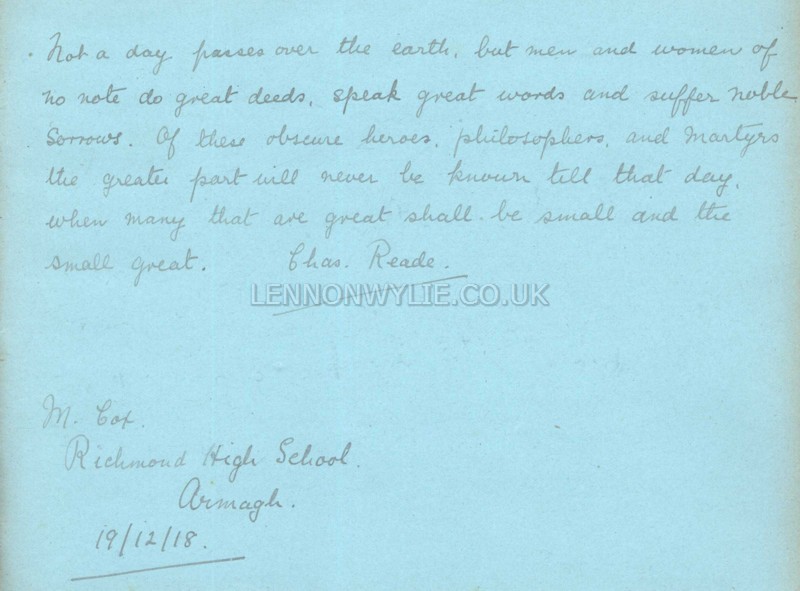 Not a day passes over the earth, but men and women of
no note do great deeds, speak great words and suffer noble
sorrows. Of these obscure heroes, philosophers, and martyrs
the greater part will never be known till that day,
when many that are great shall be small and the
small great. Chas. Reade.
LENNONWYLIE.CO.UK
M. Cox.
Richmond High School.
Armagh.
19/12/18.